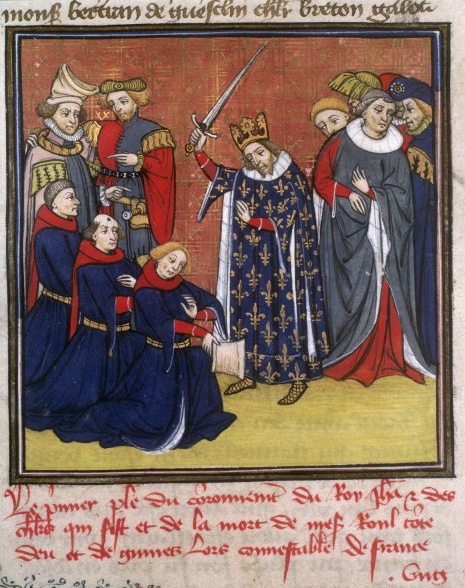 mons̄ bertran de guesclin chl̄r breton
Le p̄mier
ple du coronnement du Roy Jhā ⁊ des
chl̄rs qui fist et de la mort de mes̄ Roul conte
deu et de guines Lors connestable de france